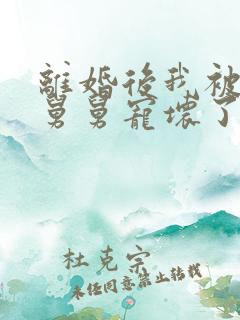 離婚後我被
舅舅寵壞了
杜克宗
未任同意禁止轉載